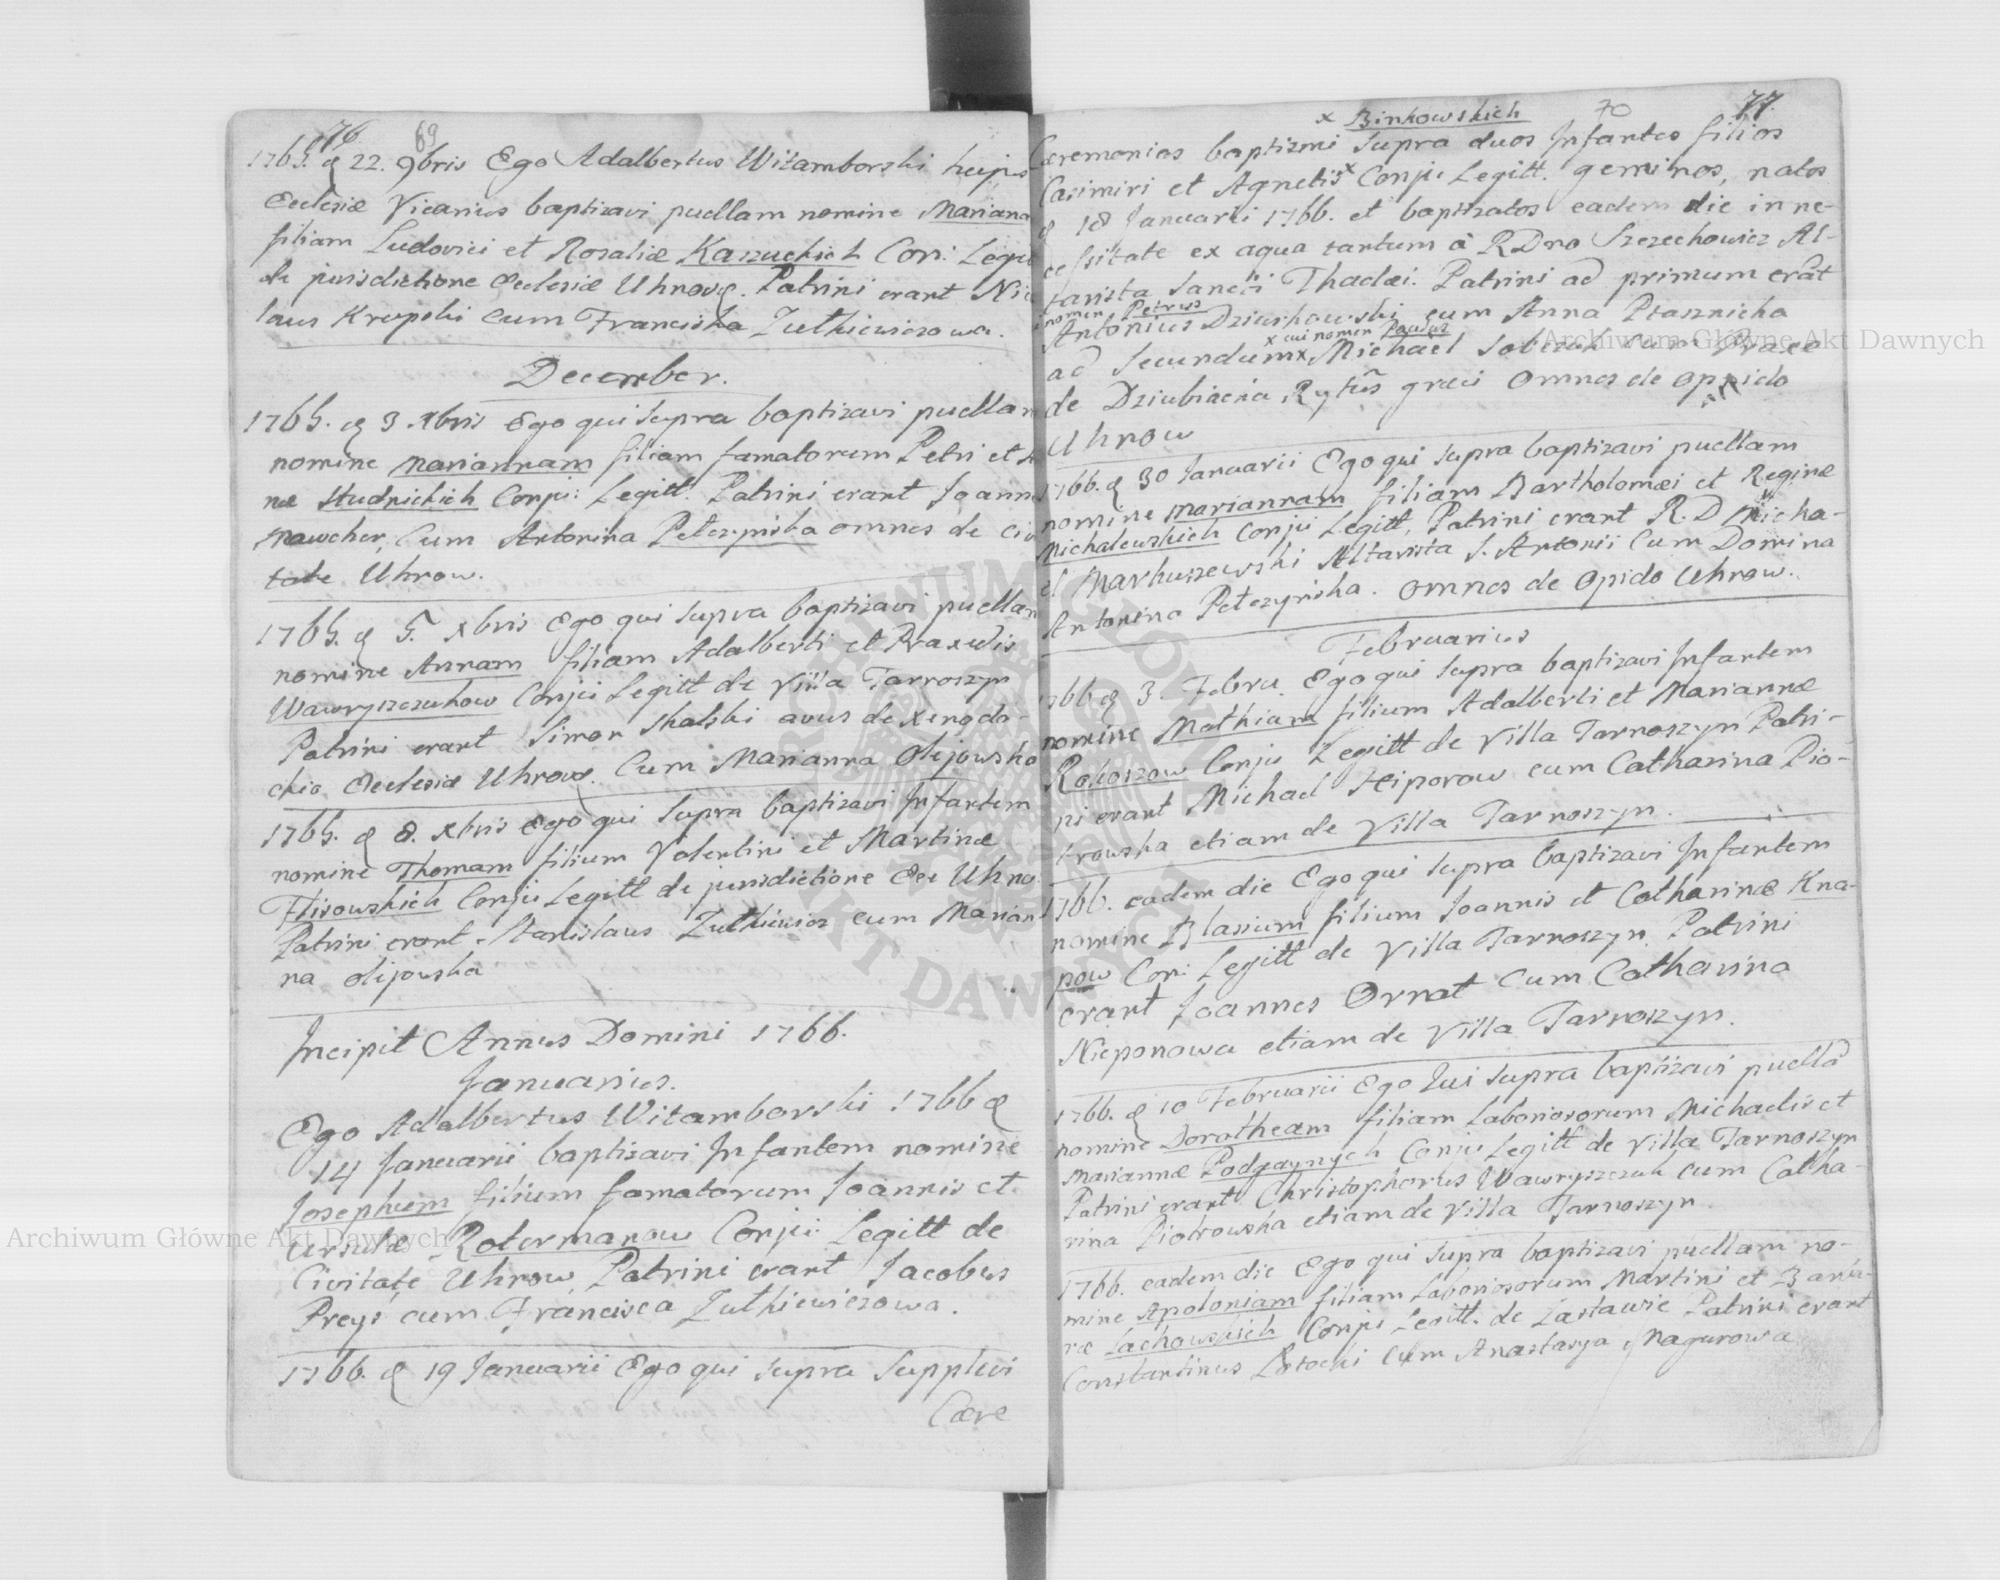 76
69
1765. d 22. 9bris Ego Adalbertus Witamborski hujus
Ecclesiæ Vicarius baptizavi puellam nomine Mariana
filiam Ludovici et Rosaliæ Kaszuckich Con: Legit
de jurisdictione Ecclesiæ Uhnovę. Patrini erant Nic
laus Krupski cum Francisca Zulkiewiczowa.
December.
1765. d 3. Xbris Ego qui supra baptizavi puellam
nomine Mariannam filiam famatorum Petri et
næ Studnickich Conju: Legitt. Patrini erant Joann
Mawcher, Cum Antonina Petczynska omnes de Civi
tate Uhnow.
1765. d 5. xbris Ego qui supra baptizavi puellam
nomine Annam filiam Adalberti et Praxedis
Wawryszczukow Conju Legitt de Villa Tarnoszyn
Patrini erant Simon Skalski avus de Xenodo-
chio Ecclesiæ Uhnovę. Cum Marianna Olijowska
1765. d 8. xbris Ego qui supra baptizavi Infantem
nomine Thomam filium Valentini et Martinæ
Flisowskich Conju Legitt de jurisdictione Ecc Uhno
Patrini erant Stanislaus Zulkiewicz cum Marian
na Olijowska
Incipit Annus Domini 1766.
Januarius.
Ego Adalbertus Witamborski 1766 d
14 Januarii baptizavi Infantem nomine
Josephum filium famatorum Joannis et
Ursulæ Rotermanow Conju: Legitt de
Civitate Uhnow, Patrini erant Jacobus
Preys cum Francisca Zulkiewiczowa.
1766. d 19 Januarii Ego qui supra supplevi
Cære
x Binkowskich
70
77.
Cæremonias baptizmi supra duos Infantes filios
Casimiri et Agnetis x Conju Legitt. geminos, natos
d 18 Januarii 1766. et baptizatos eadem die in ne-
cessitate ex aqua tantum à RDno Szczechowicz Al-
tarista Sancti Thadæi. Patrini ad primum erãt
nomen Petrus
Antonius Dziurkowski cum Anna Ptasznicha
x cui nomen Paulus
ad Secundum x Michaël Sobczuk cum Praxe
de Dziubiacria Rytũs græci Omnes de Oppido
Uhnow
1766. d 30 Januarii Ego qui supra baptizavi puellam
nomine Mariannam filiam Bartholomæi et Reginæ
Michalewskich Conju Legitt, Patrini erant R.D Micha-
el Markuszewski Altarista S. Antonii Cum Domina
Antonina Petczynska. Omnes de Opido Uhnow.
Februarius
1766 d 3. Febru. Ego qui supra baptizavi Infantem
nomine Mathiam filium Adalberti et Mariannæ
Rokoszow Conju Legitt de Villa Tarnoszyn Patri-
ni erant Michael Heiporow cum Catharina Pio-
trowska etiam de Villa Tarnoszyn.
1766. eadem die Ego qui supra baptizavi Infantem
nomine Blasium filium Joannis et Catharinæ Kna-
pow Con: Legitt de Villa Tarnoszyn. Patrini
erant Joannes Ornat Cum Catharina
Nieponowa etiam de Villa Tarnoszyn.
1766. d 10 Februarii Ego Qui supra baptizavi puellã
nomine Dorotheam filiam Laboriosorum Michaelis et
Mariannæ Podgaynych Conju Legitt de Villa Tarnoszyn
Patrini erant Christophorus Wawryszczuk cum Catha-
rina Piotrowska etiam de Villa Tarnoszyn
1766. eadem die Ego qui supra baptizavi puellam no-
mine Apoloniam filiam Laboriosorum Martini et Barba-
ræ Lachowskich Conju Legitt. de Zastawie Patrini erant
Constantinus Potocki cum Anastasya Magurowa
Archiwum Główne Akt Dawnych
Archiwum Główne Akt Dawnych
ARCHIWUM GŁÓWNE AKT DAWNYCH